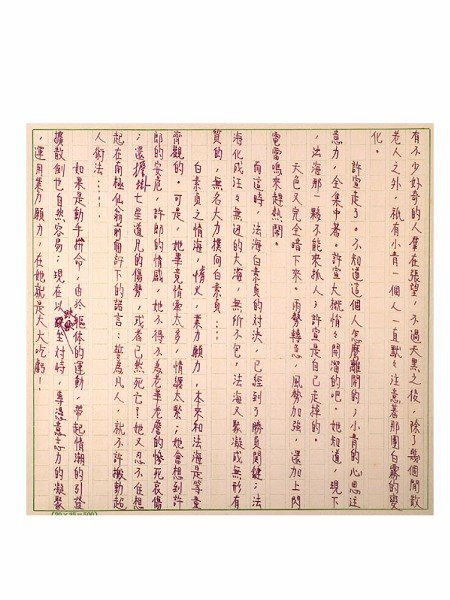 有不少好奇的人留在張望,不過天黑之後,除了幾個閒散
老人之外,祇有小青一個人一直默々注意著那團白霧的變
化。
許宣走了。不知道這個人怎麼離開的;小青的心思注
意力,全集中著。許宣大概悄々開溜的吧。她知道,現下
,法海那一夥不能來抓人;許宣是自己走掉的。
天色又完全暗下來。雨勢轉急,風勢加強,還加上閃
電雷鳴來趕熱鬧。
而這時,法海白素貞的對決,已經到了勝負関鍵;法
海化成汪々無邊的大海,無所不包,法海又聚凝成無形有
質的,無名大力撲向白素貞⋯
白素貞之情海,情天,業力願力,本來和法海是等量
齊觀的。可是,她畢竟情牽太多,情繫太緊;她會想到許
郎的安危,許郎的情感,她不得不為老婆老麼的慘死哀傷
;還擔掛七星道兄的傷勢,或者已然死亡?她又忍不住想
起在南極仙翁前面許下的諾言:誓為凡人,就不許搬動起
人術法⋯⋯!
如果是動手拼命,由於軀体的運動,帶起情潮的引發
擴散倒也自然容易;現在以默坐對峙,專憑意志力的凝聚
,運用業力願力,在她就是大大吃虧!